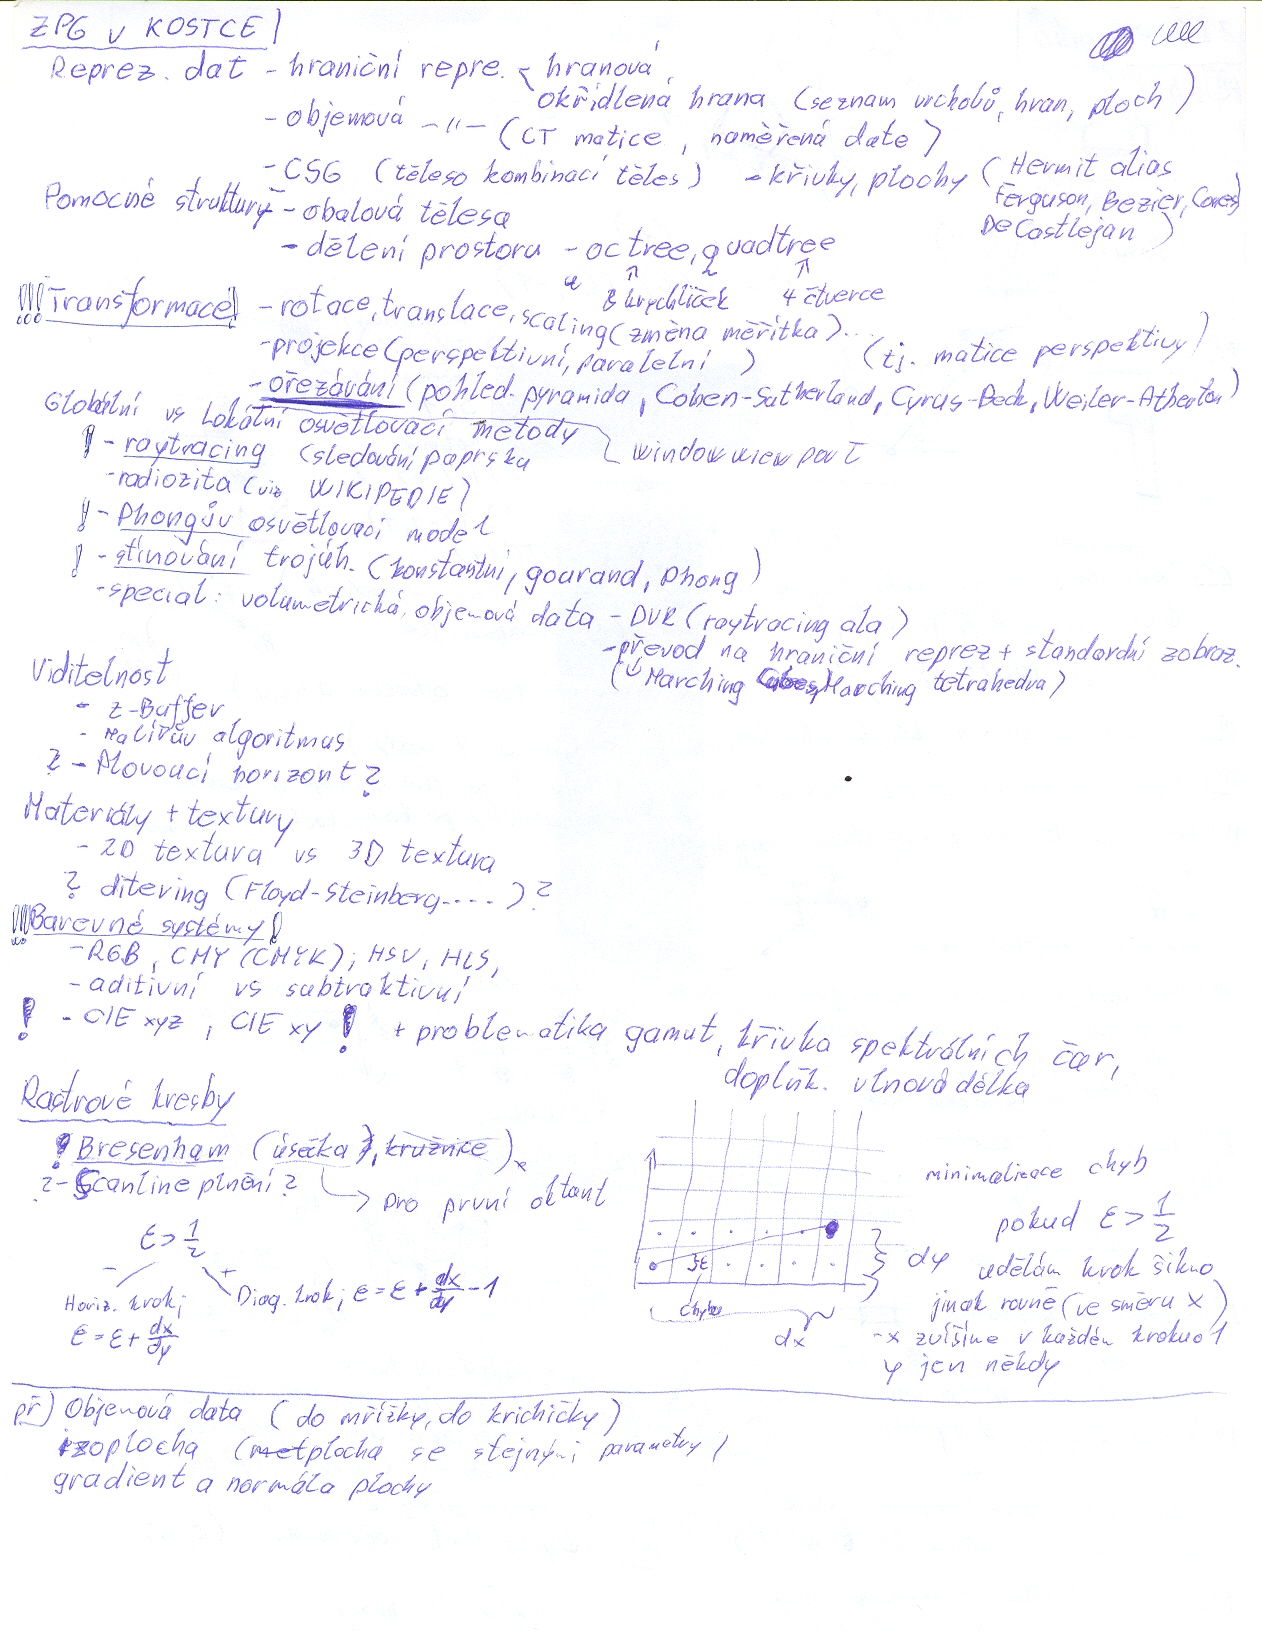 ZPG v KOSTCE!
Reprez. dat - hraniční repre. < hranová,
okřídlená hrana (seznam vrcholů, hran, ploch)
- objemová -"- (CT matice, naměřená data)
- CSG (těleso kombinací těles) - křivky, plochy (Hermit alias
Ferguson, Bezier, Coons
DeCastlejan)
Pomocné struktury - obalová tělesa
- dělení prostoru - octree, quadtree
8 krychliček 4 čtverce
!!! Transformace! - rotace, translace, scaling (změna měřítka)...
- projekce (perspektivní, paralelní) (tj. matice perspektivy)
- ořezávání (pohled. pyramida, Cohen-Sutherland, Cyrus-Beck, Weiler-Atherton)
Globální vs Lokální osvětlovací metody
window viewport
! - raytracing (sledování paprsku
- radiozita (viz WIKIPEDIE)
! - Phongův osvětlovací model
! - stínování trojúh. (konstantní, gourand, Phong)
- special: volumetrická, objemová data - DVR (raytracing ala)
- převod na hraniční reprez + standardní zobraz.
(Marching Cubes, Marching tetrahedra)
Viditelnost
- z-Buffer
- Malířův algoritmus
? - Plovoucí horizont?
Materiály + textury
- 2D textura vs 3D textura
? ditering (Floyd-Steinberg....)?
!!! Barevné systémy!
- RGB, CMY (CMYK); HSV, HLS,
- aditivní vs subtraktivní
! - CIE xyz, CIE xy! + problematika gamut, křivka spektrálních čar,
doplňk. vlnová délka
Rastrové kresby
! Bresenham (úsečka), kružnice)
? - Scanline plnění?
pro první oktant
ε > 1/2
- +
Horiz. krok; Diag. krok; ε = ε + dx/dy - 1
ε = ε + dx/dy
ε
chyba
dx
dy
minimalizace chyb
pokud ε > 1/2
udělám krok šikmo
jinak rovně (ve směru x)
- x zvíšíme v každém kroku o 1
y jen někdy
př) Objemová data (do mřížky, do krichičky)
izoplocha (plocha se stejnými parametry)
gradient a normála plochy